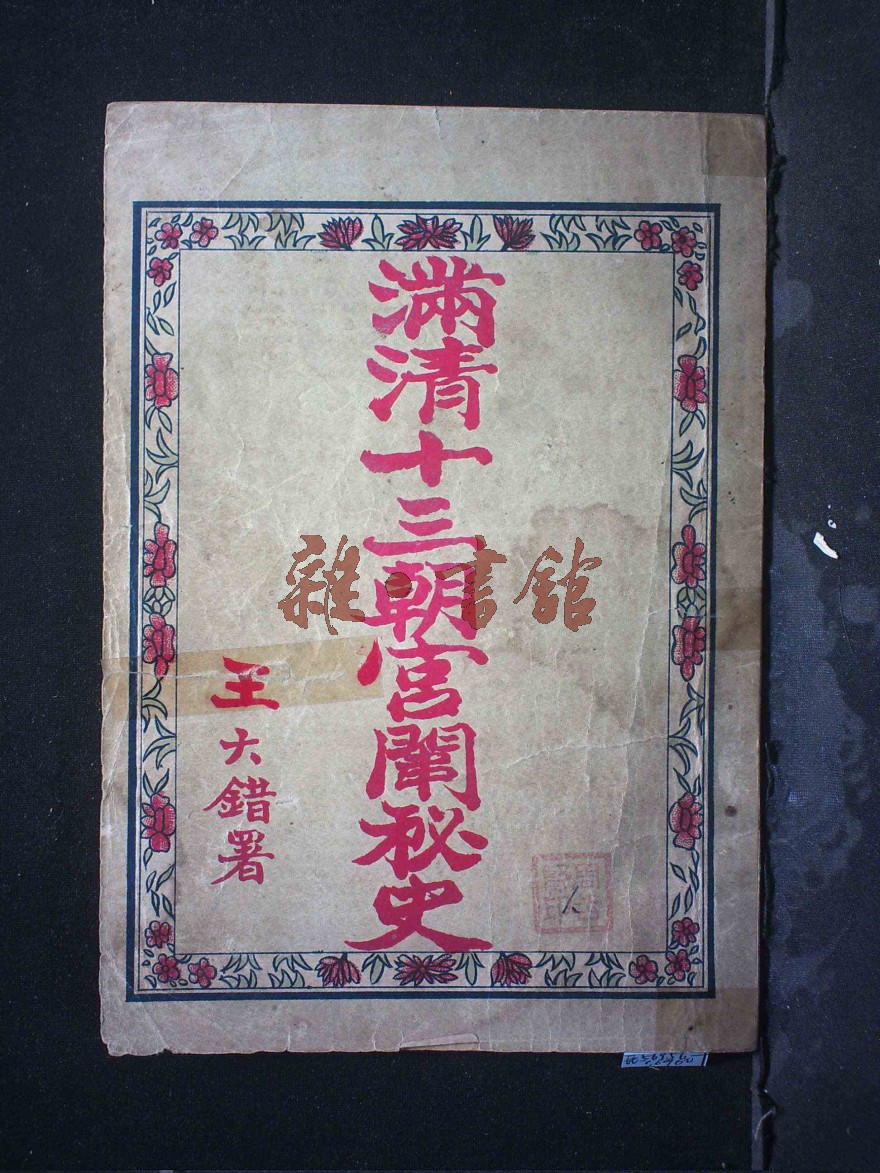 滿清十三朝宮闈秘史
王大錯署
雜·書館